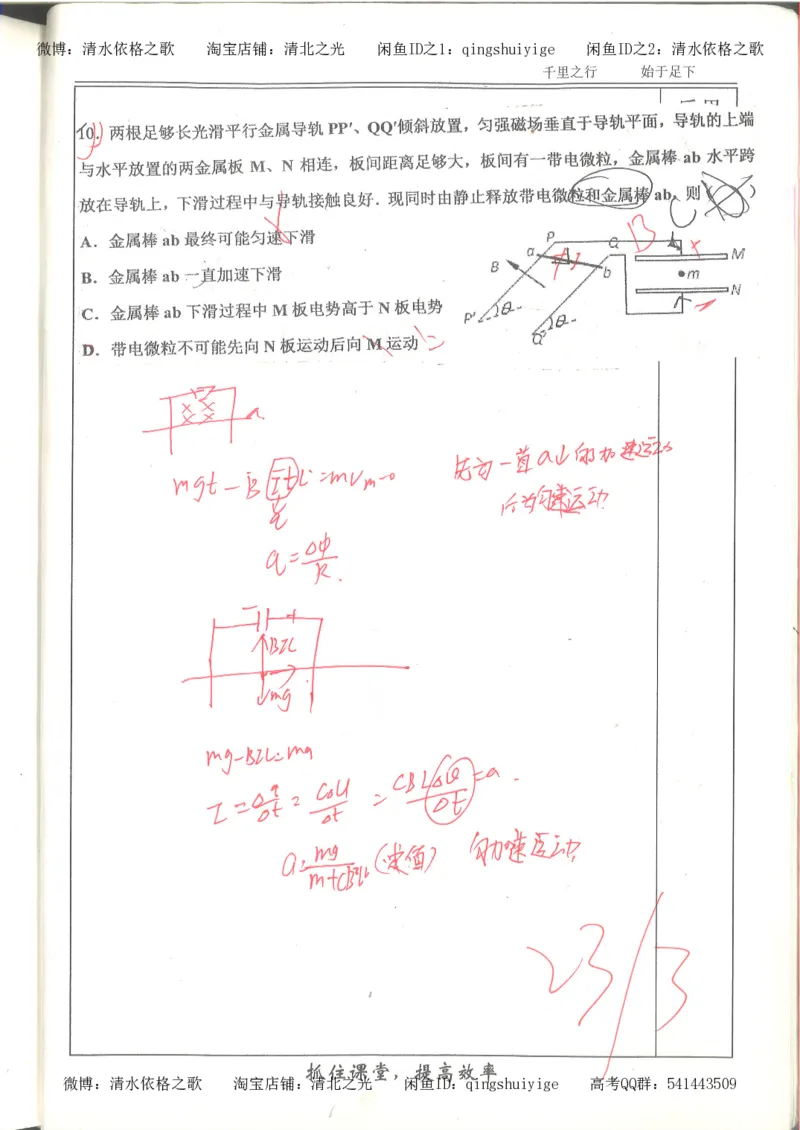 微博：清水依格之歌 淘宝店铺：清北之光 闲鱼ID之1：qingshuiyige 闲鱼ID之2：清水依格之歌
千里之行 始于足下
10. 两根足够长光滑平行金属导轨 PP′、QQ′倾斜放置，匀强磁场垂直于导轨平面，导轨的上端
与水平放置的两金属板 M、N 相连，板间距离足够大，板间有一带电微粒，金属棒 ab 水平跨
放在导轨上，下滑过程中与导轨接触良好．现同时由静止释放带电微粒和金属棒 ab，则（ ）
A．金属棒 ab 最终可能匀速下滑
B．金属棒 ab 一直加速下滑
C．金属棒 ab 下滑过程中 M 板电势高于 N 板电势
D．带电微粒不可能先向 N 板运动后向 M 运动
P a B Q b M m N P′ θ Q′ θ
B
a
mgt - B It L = mVm - 0
先为一直a↓的加速运动
后为匀速运动
q = Δφ/R
BIL
mg
mg - BIL = ma
I = Δq/Δt = CΔU/Δt = CBLΔv/Δt = a
a = mg/(m+CB²L²) (定值) 匀加速运动
23/3
抓住课堂，提高效率
微博：清水依格之歌 淘宝店铺：清北之光 闲鱼ID：qingshuiyige 高考QQ群：541443509